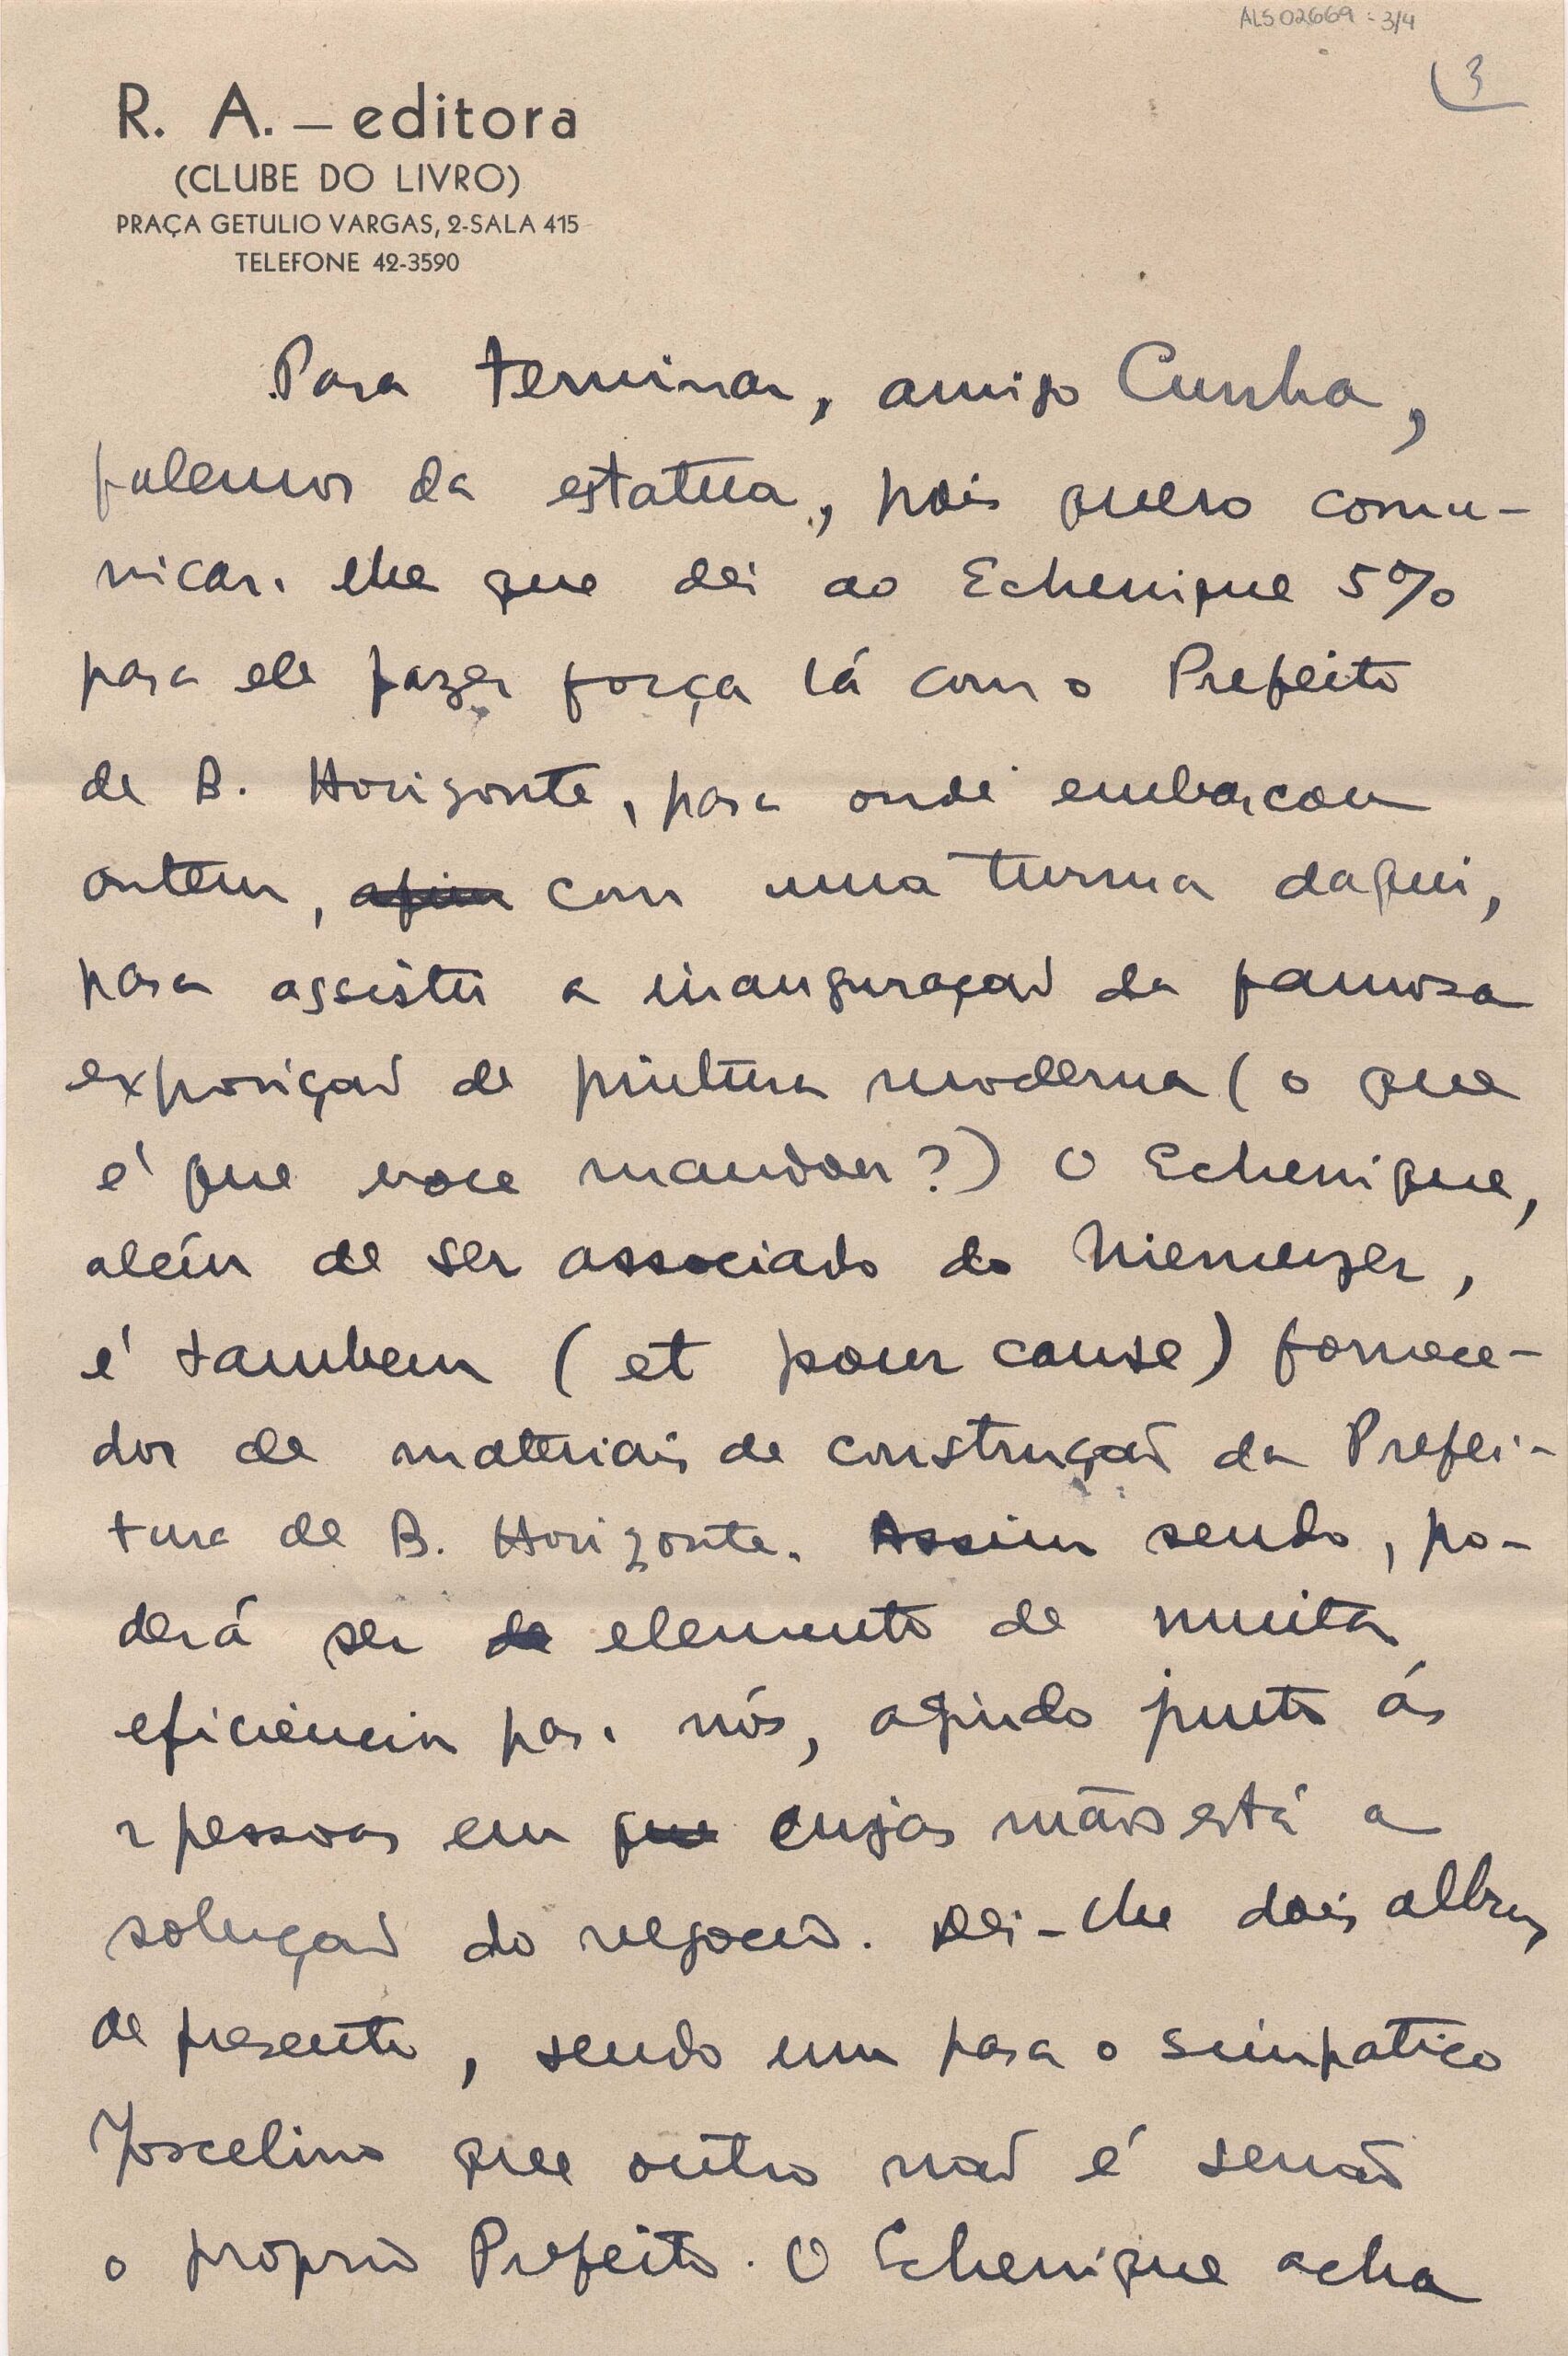 ALS02669-3/4
3
R. A. — editora
(CLUBE DO LIVRO)
PRAÇA GETULIO VARGAS, 2-SALA 415
TELEFONE 42-3590
Para terminar, amigo Cunha,
falemos da estatua, pois quero comu-
nicar-lhe que dei ao Echenique 5%
para ele fazer força lá com o Prefeito
de B. Horizonte, para onde embarcou
ontem, afim com uma turma daqui,
para assistir a inauguração da famosa
exposição de pintura moderna (o que
é que voce mandou?) O Echenique,
além de ser associado do Niemeyer,
é tambem (et pour cause) fornece-
dor de materiais de construção da Prefei-
tura de B. Horizonte. Assim sendo, po-
derá ser de elemento de muita
eficiência para nós, agindo junto ás
pessoas em que cujas mãos está a
solução do negocio. Dei-lhe dois albuns
de presente, sendo um para o simpatico
Joscelino que outro não é senão
o proprio Prefeito. O Echenique acha